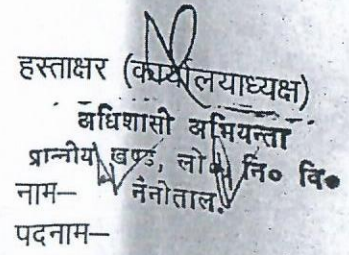 हस्ताक्षर (कार्यालयाध्यक्ष)
अधिशासी अभियन्ता
प्रान्तीय खण्ड, लो० नि० वि०
नाम– नैनीताल
पदनाम–